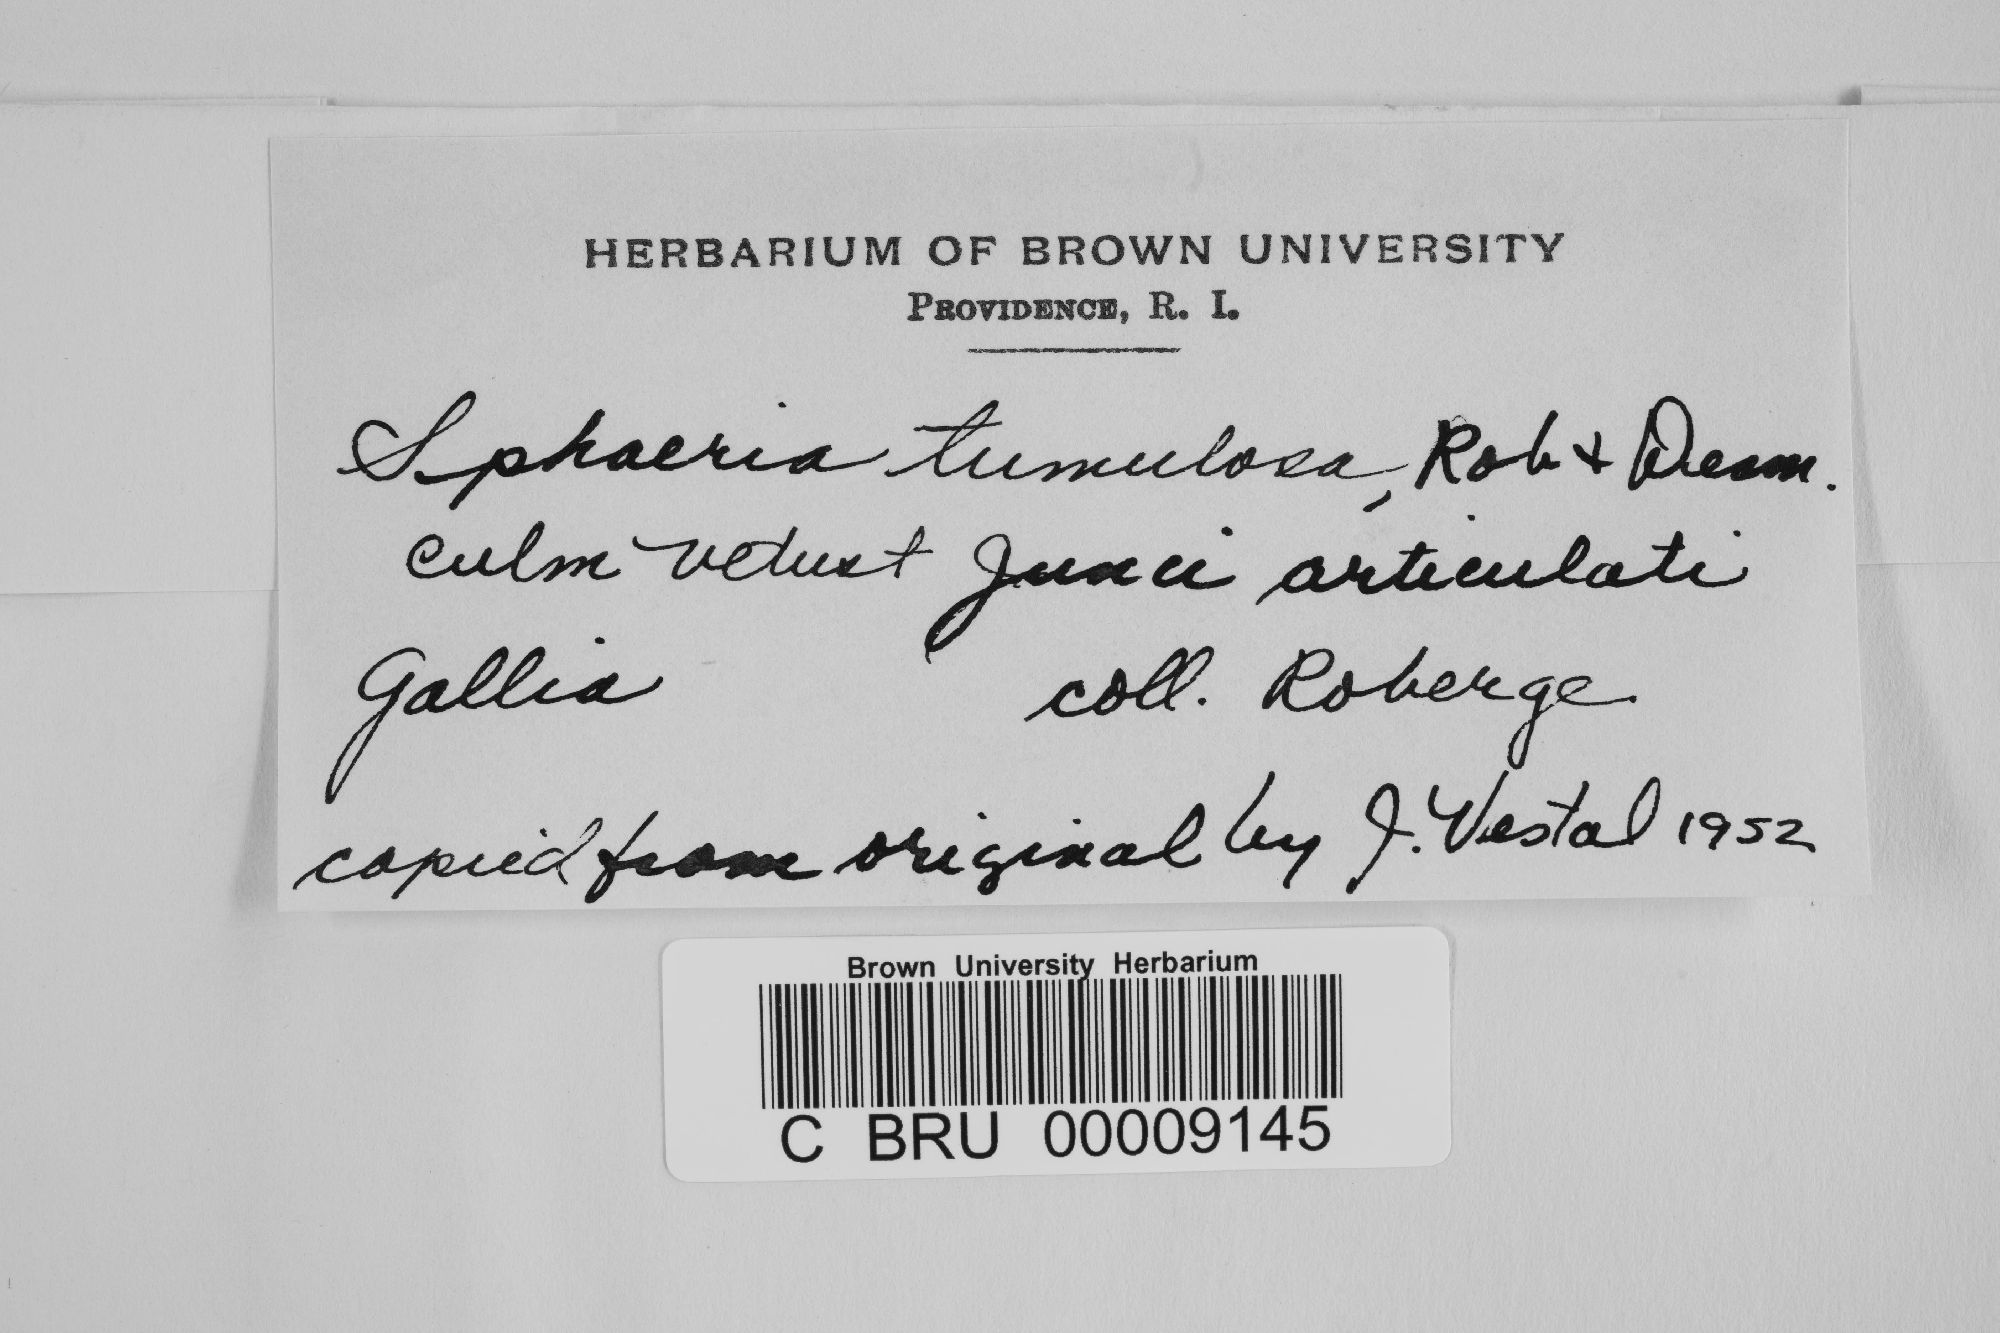 HERBARIUM OF BROWN UNIVERSITY
PROVIDENCE, R. I.
Sphaeria tumulosa, Rob + Desm.
culm vetust Junci articulati
Gallia coll. Roberge
copied from original by J. Vestal 1952
Brown University Herbarium
C BRU 00009145